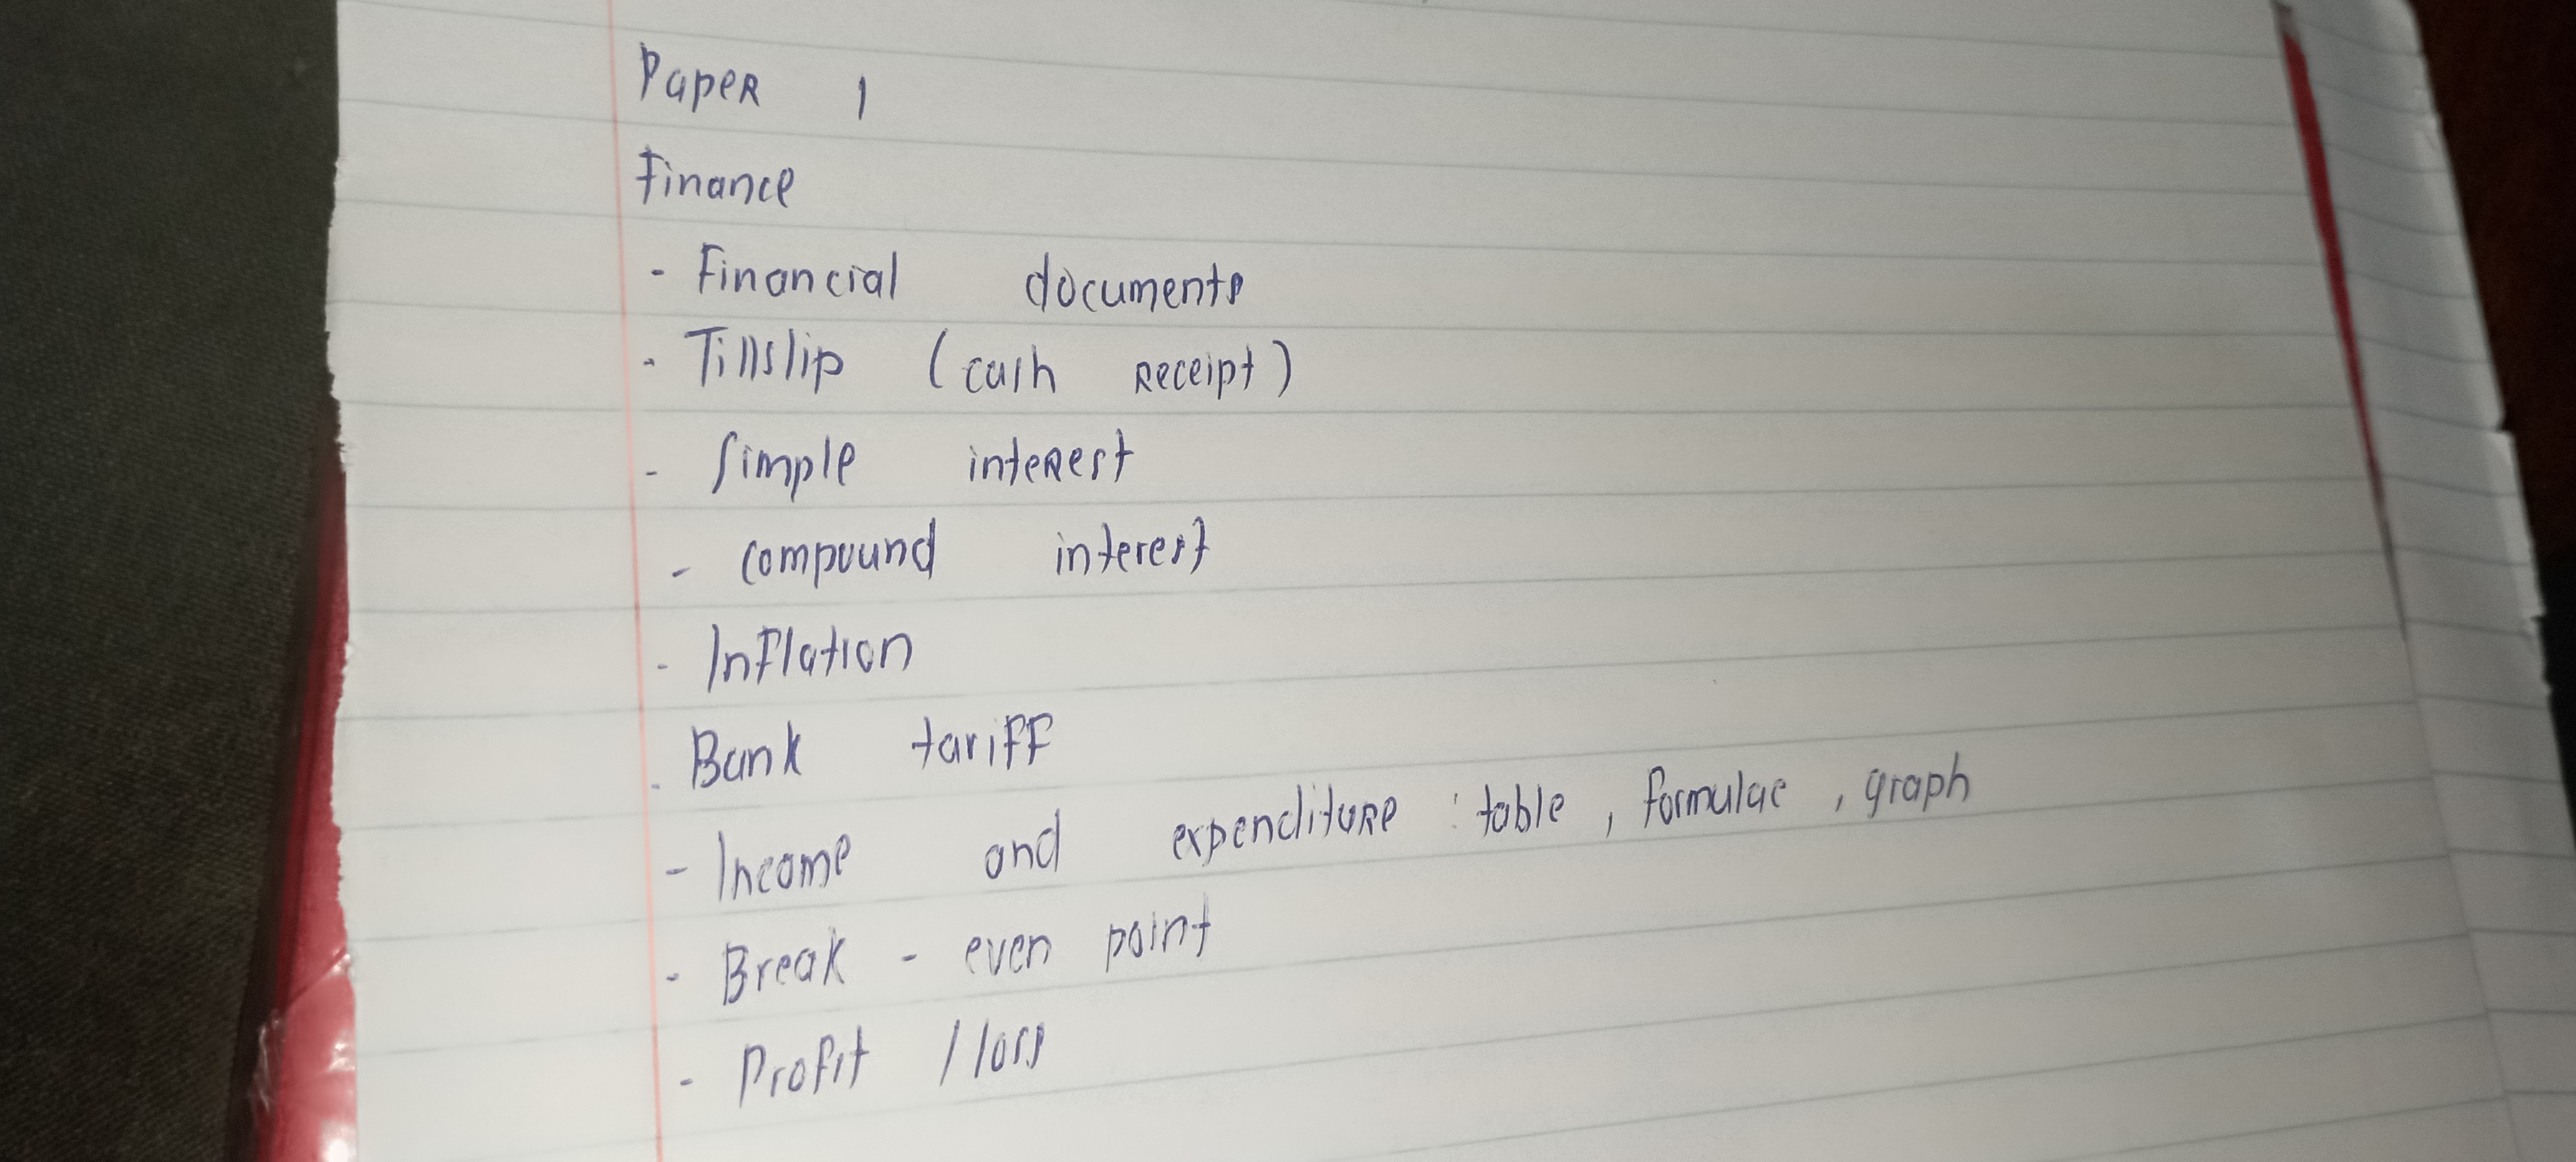 Paper 1
Finance
- Financial documents
- Tillslip (cash receipt)
- Simple interest
- compound interest
- Inflation
- Bank tariff
- Income and expenditure : table , formulae , graph
- Break - even point
- Profit / loss